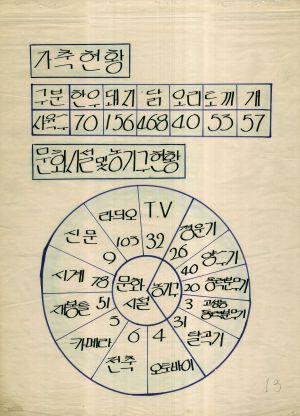 가축현황
구분 한우 돼지 닭 오리 토끼 개
사육수 70 156 468 40 53 57
문화시설및농기구현황
문화시설
농기구
T.V 32
경운기 26
양수기 40
동력분무기 20
고성능동력분무기 3
탈곡기 31
오토바이 4
전축 6
카메라 5
재봉틀 51
시계 78
신문 9
라듸오 103
13